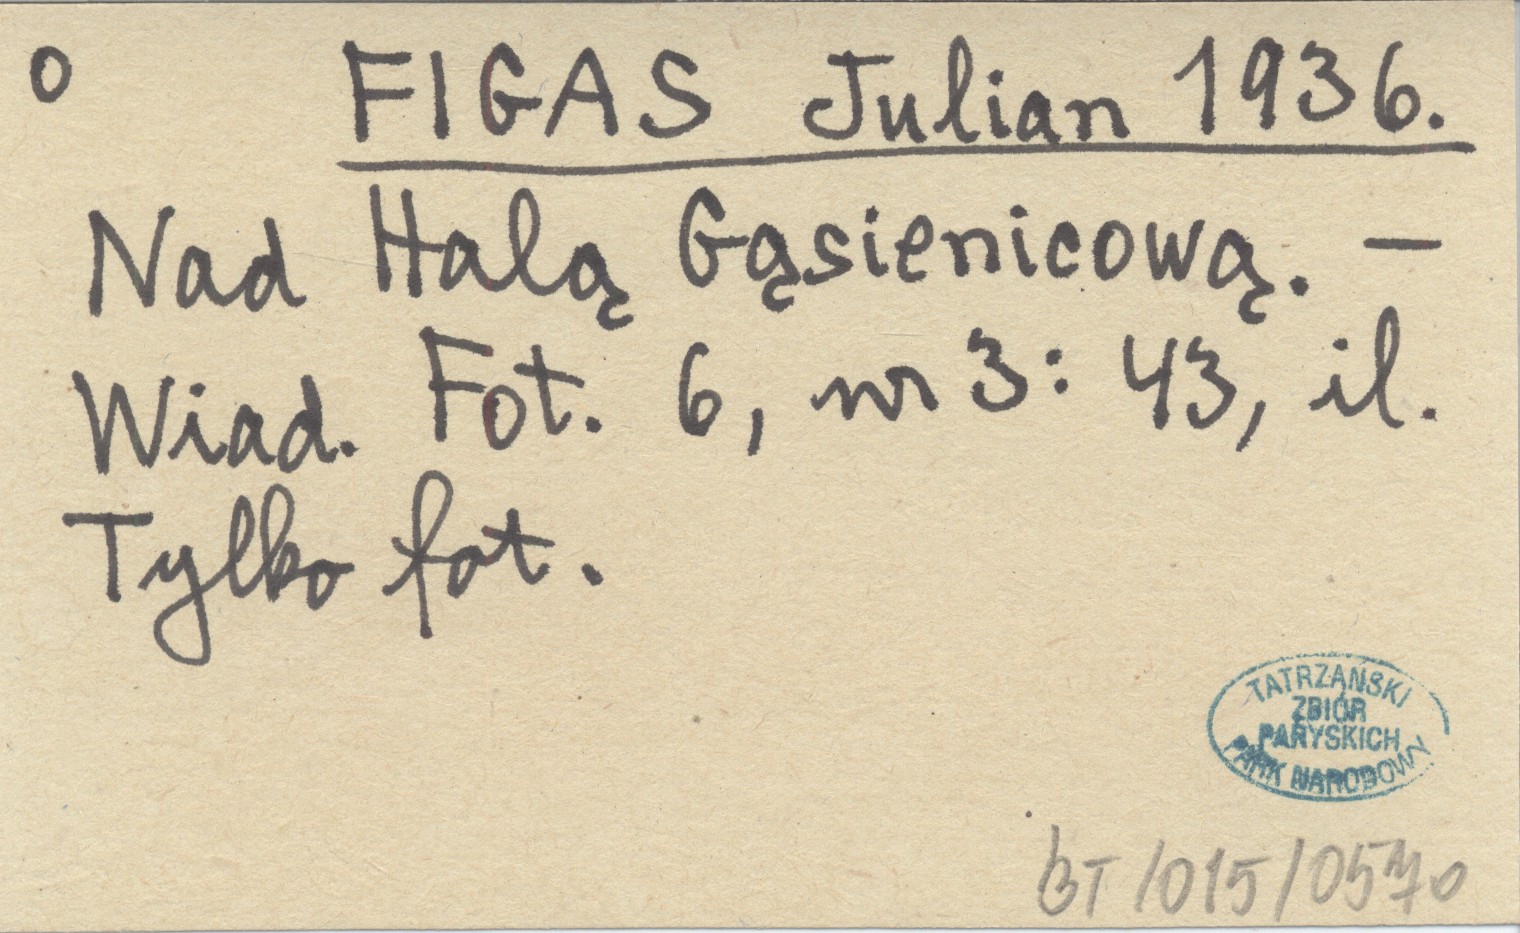 o FIGAS Julian 1936.
Nad Halą Gąsienicową. —
Wiad. Fot. 6, nr 3: 43, il.
Tylko fot.
TATRZAŃSKI
ZBIÓR
PARYSKICH
PARK NARODOWY
BT/015/0570